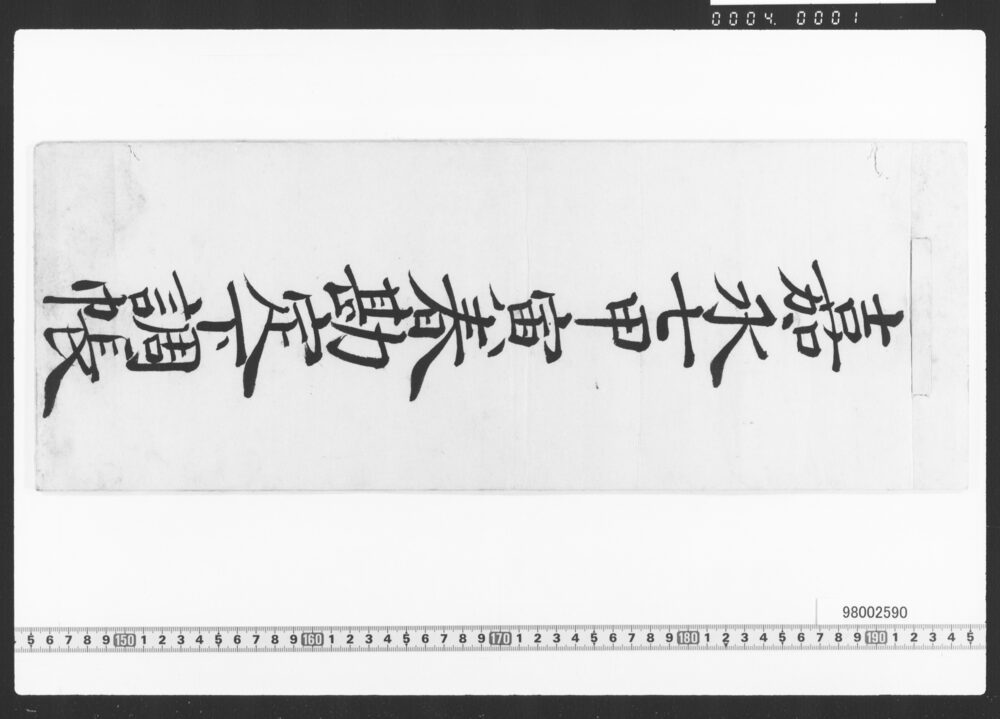 嘉永七甲寅春勘定下調帳
0004. 0001
98002590
5 6 7 8 9 150 1 2 3 4 5 6 7 8 9 160 1 2 3 4 5 6 7 8 9 170 1 2 3 4 5 6 7 8 9 180 1 2 3 4 5 6 7 8 9 190 1 2 3 4 5